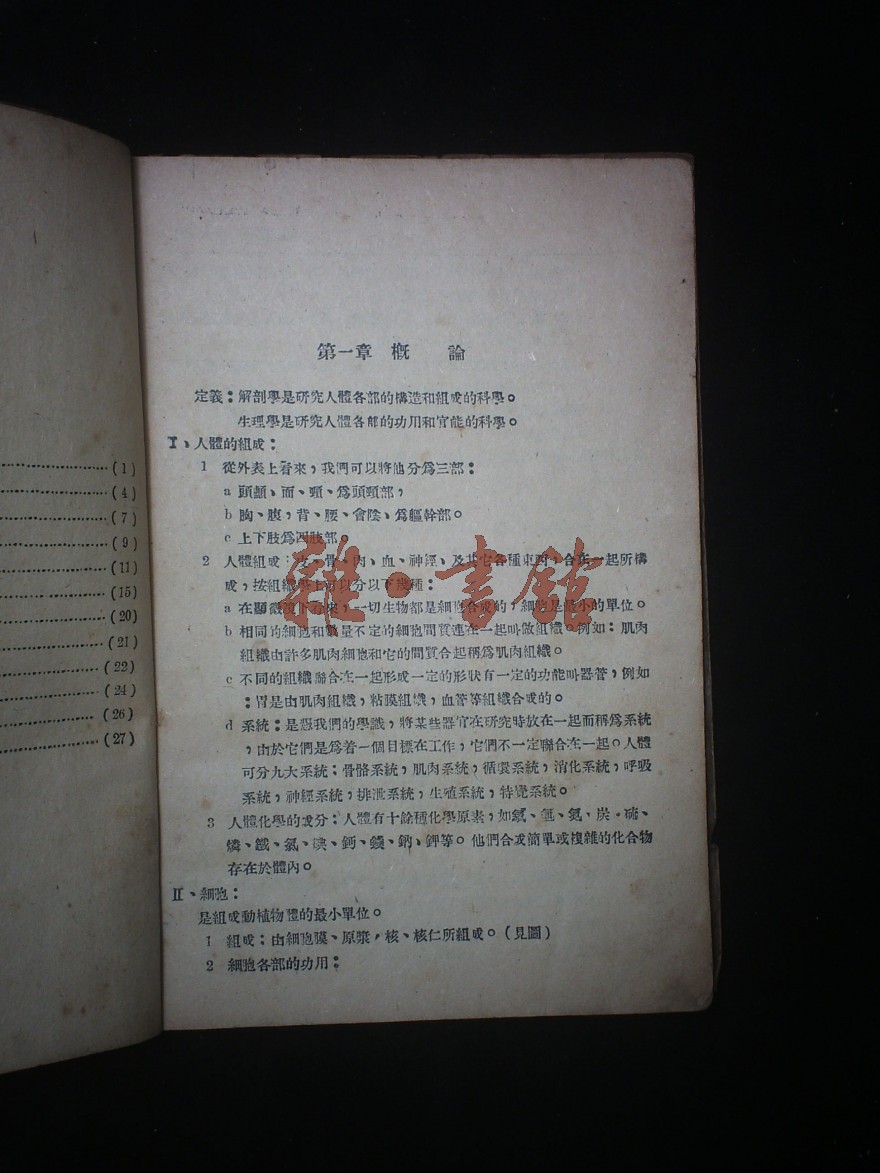 ……………(1)
……………(4)
……………(7)
……………(9)
……………(11)
……………(15)
……………(20)
……………(21)
……………(22)
……………(24)
……………(26)
……………(27)
第一章 概 論
定義：解剖學是研究人體各部的構造和組成的科學。
生理學是研究人體各部的功用和官能的科學。
I、人體的組成：
1 從外表上看來，我們可以將他分爲三部：
a 頭顱、面、頸、爲頭頸部，
b 胸、腹，背、腰、會陰、爲軀幹部。
c 上下肢爲四肢部。
2 人體組成：皮、骨、肉、血、神經、及其它各種東西，合在一起所構
成，按組織學上可以分以下幾種：
a 在顯微鏡下看來，一切生物都是細胞合成的，細胞是最小的單位。
b 相同的細胞和數量不定的細胞間質連在一起叫做組織。例如：肌肉
組織由許多肌肉細胞和它的間質合起稱爲肌肉組織。
c 不同的組織聯合在一起形成一定的形狀有一定的功能叫器管，例如
：胃是由肌肉組織，粘膜組織，血管等組織合成的。
d 系統：是憑我們的學識，將某些器官在研究時放在一起而稱爲系統
，由於它們是爲着一個目標在工作，它們不一定聯合在一起。人體
可分九大系統：骨骼系統，肌肉系統，循環系統，消化系統，呼吸
系統，神經系統，排泄系統，生殖系統，特覺系統。
3 人體化學的成分：人體有十餘種化學原素，如氧、氫、氮、炭、硫、
燐、鐵、氯、碘、鈣、鎂、鈉、鉀等。他們合成簡單或複雜的化合物
存在於體內。
II、細胞：
是組成動植物體的最小單位。
1 組成：由細胞膜、原漿，核、核仁所組成。(見圖)
2 細胞各部的功用：
雜·書館